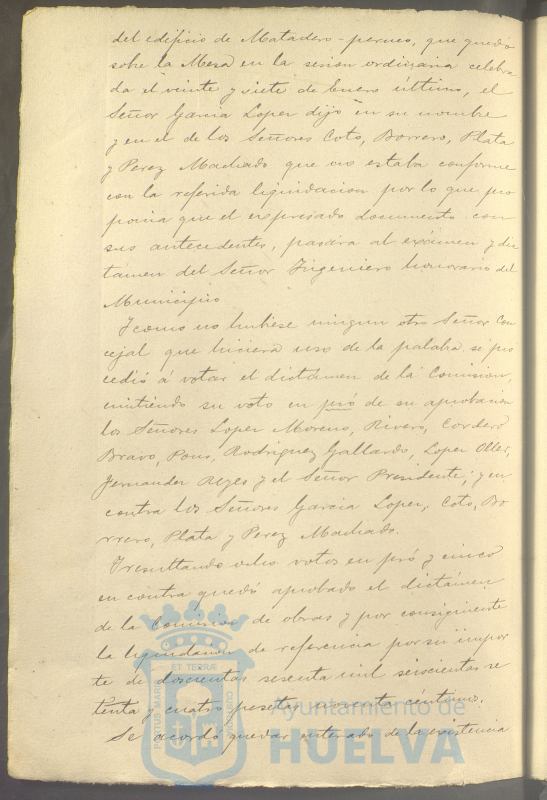 del edificio de Matadero-perneo, que quedó
sobre la Mesa en la sesion ordinaria celebra
da el veinte y siete de Enero último, el
Señor Garcia Lopez dijo en su nombre
y en el de los Señores Coto, Borrero, Plata
y Perez Machado que no estaba conforme
con la referida liquidacion por lo que pro
ponia que el expresado documento con
sus antecedentes, pasára al exámen y dic
támen del Señor Ingeniero honorario del
Municipio
Y como no hubiese ningun otro Señor Con
cejal que hiciera uso de la palabra se pro
cedió á votar el dictámen de la Comision,
emitiendo su voto en pró de su aprobacion
los Señores Lopez Moreno, Rivero, Cordero
Bravo, Pons, Rodriguez Gallardo, Lopez Oller,
Fernandez Reyes y el Señor Presidente; y en
contra los Señores Garcia Lopez, Coto, Bo
rrero, Plata y Perez Machado.
Y resultando ocho votos en pró y cinco
en contra quedó aprobado el dictámen
de la Comision de obras y por consiguiente
la liquidacion de referencia por su impor
te de doscientas sesenta mil seiscientas se
tenta y cuatro pesetas noventa céntimos.
Se acordó quedar enterado de la existencia
PORTUS MARIS ET TERRÆ CUSTODIA
Ayuntamiento de
HUELVA